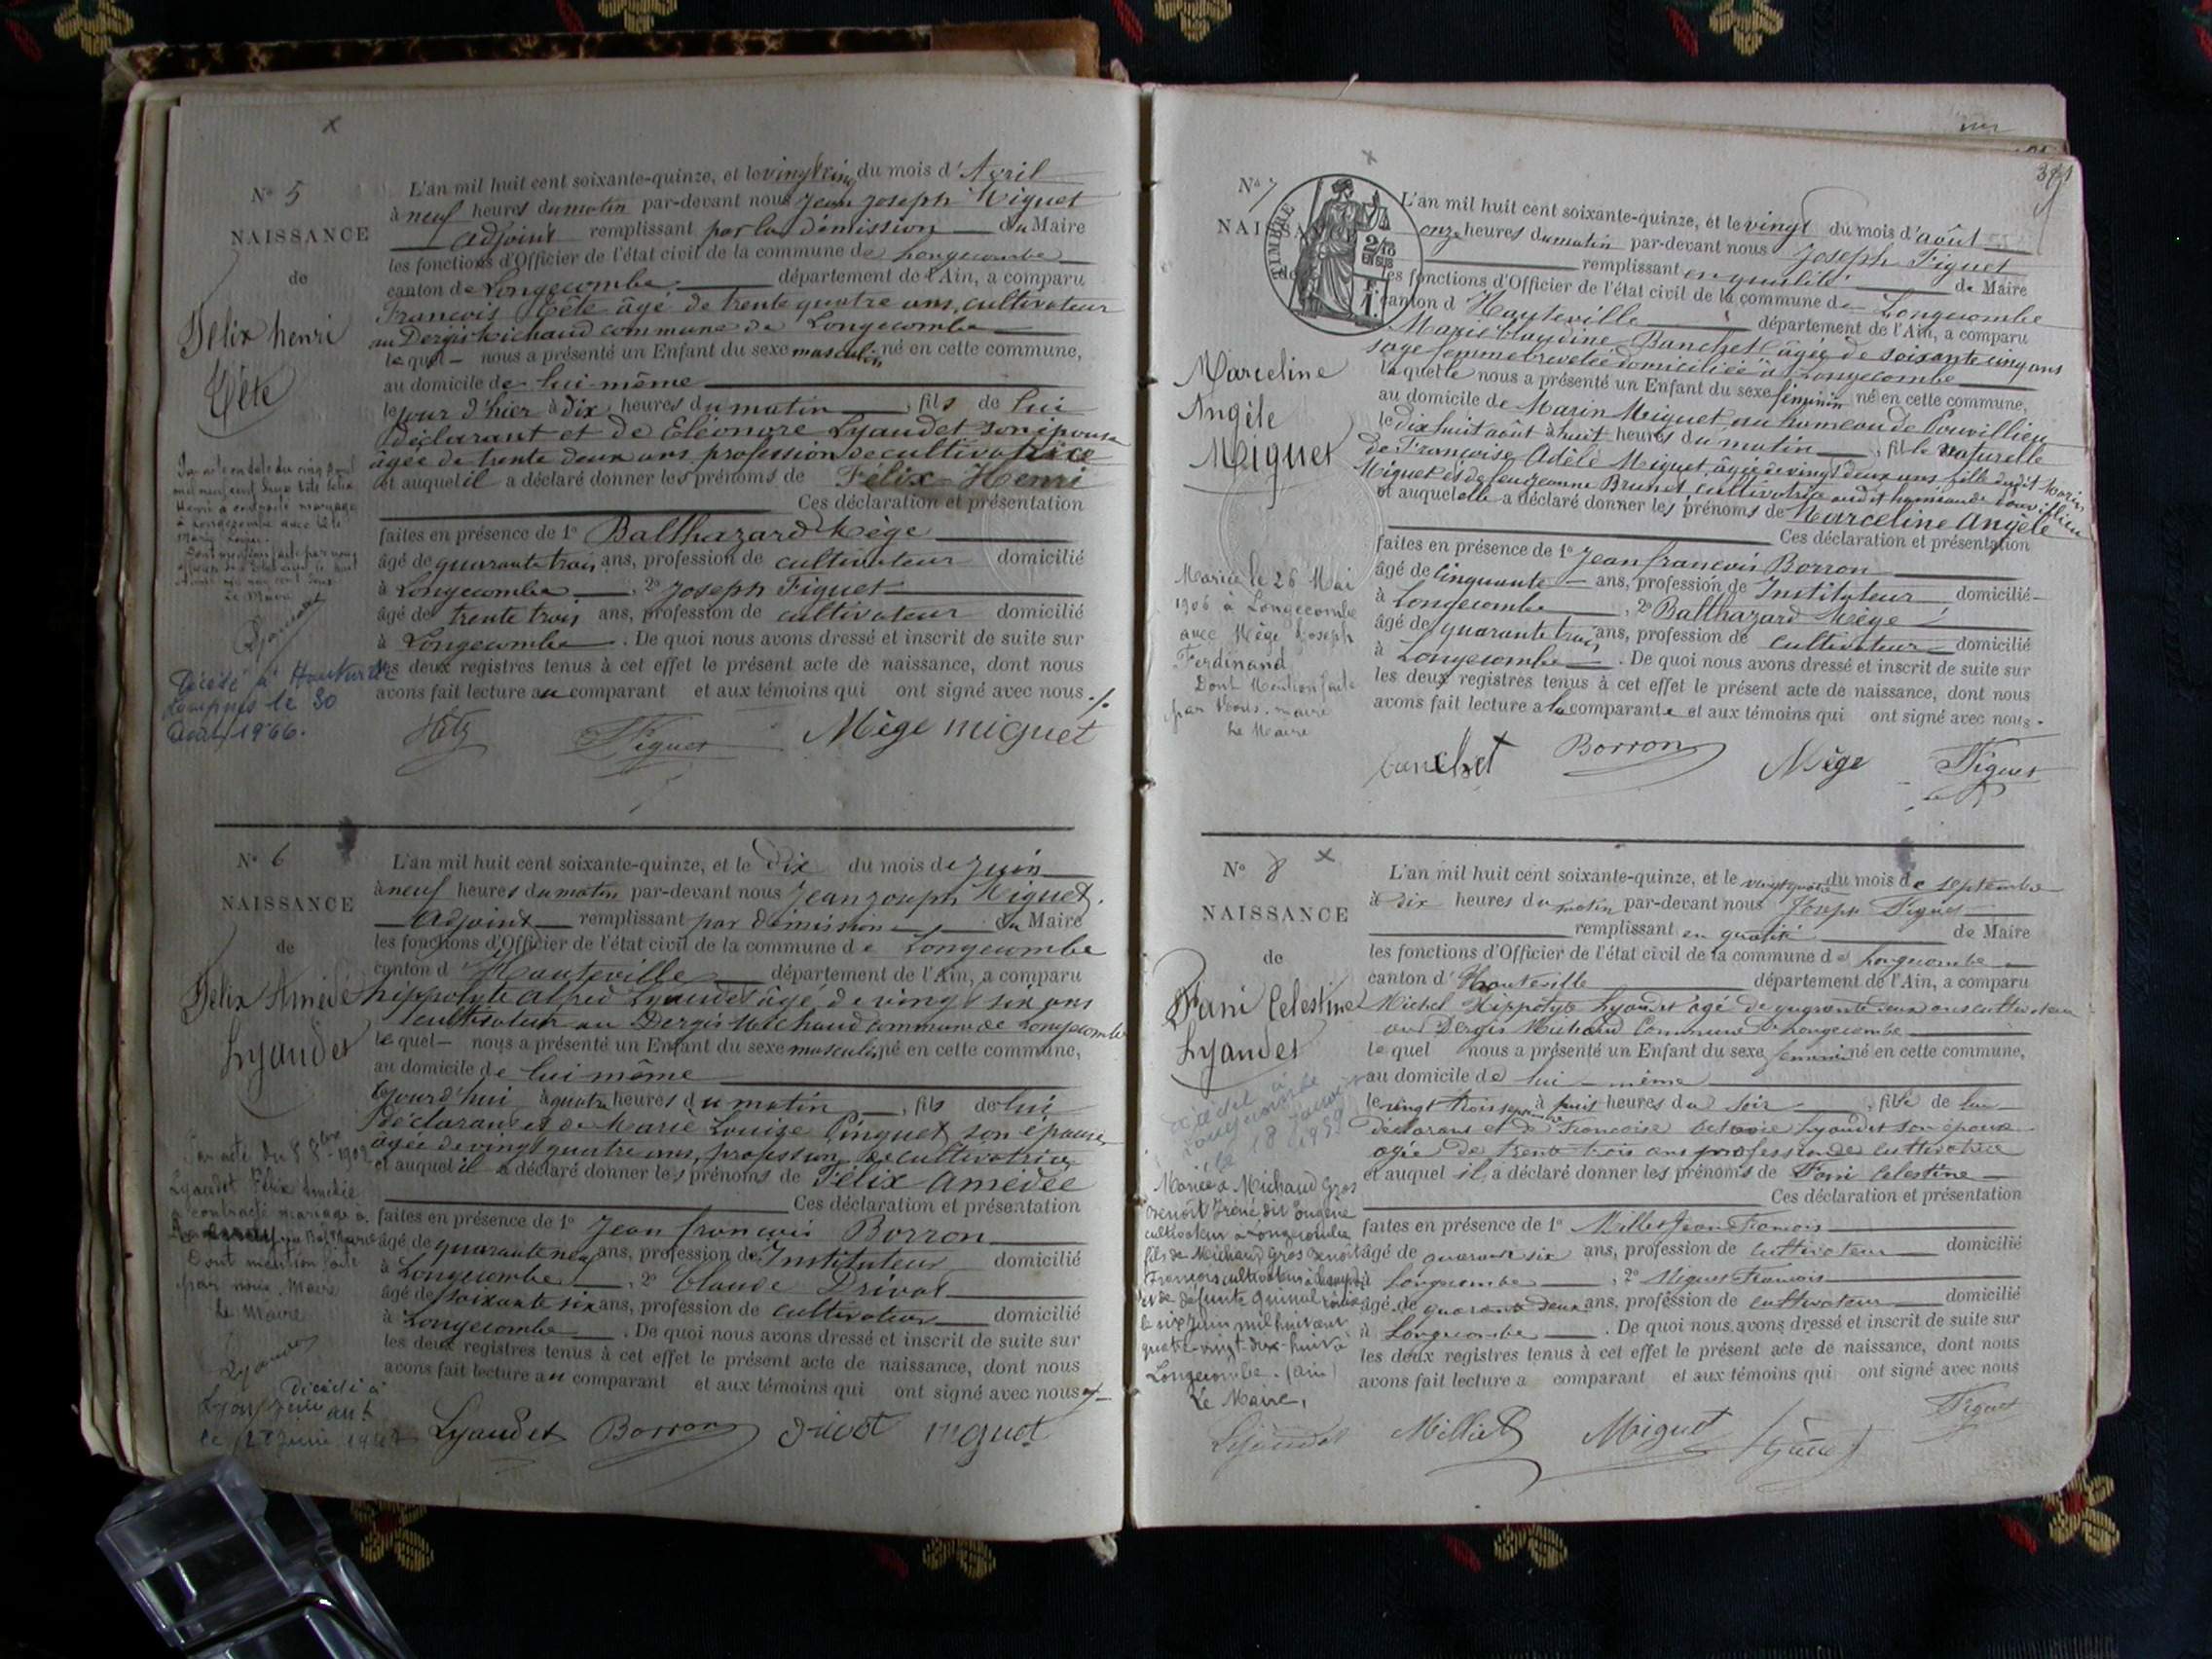 N° 5
NAISSANCE
de
Félix henri
Tête
L'an mil huit cent soixante-quinze, et le vingt cinq du mois d'Avril
à neuf heures du matin par-devant nous Jean Joseph Miguet
adjoint remplissant par la démission du Maire
les fonctions d'Officier de l'état civil de la commune de Longecombe
canton de Longecombe département de l'Ain, a comparu
François Tête âgé de trente quatre ans, cultivateur
au Dergis Michaud commune de Longecombe
le quel nous a présenté un Enfant du sexe masculin né en cette commune,
au domicile de lui-même
le jour d'hier à dix heures du matin, fils de lui
déclarant et de Eléonore Lyaudet son épouse
âgée de trente deux ans profession de cultivatrice
et auquel il a déclaré donner les prénoms de Félix-Henri
Ces déclaration et présentation
faites en présence de 1° Balthazard Mège
âgé de quarante trois ans, profession de cultivateur domicilié
à Longecombe, 2° Joseph Figuet
âgé de trente trois ans, profession de cultivateur domicilié
à Longecombe. De quoi nous avons dressé et inscrit de suite sur
les deux registres tenus à cet effet le présent acte de naissance, dont nous
avons fait lecture au comparant et aux témoins qui ont signé avec nous
Le Maire
Décédé à Hauteville
Lompnes le 30
Août 1966.
Figuet Mège miguet
N° 6
NAISSANCE
de
Félix Amédé
Lyaudet
L'an mil huit cent soixante-quinze, et le dix du mois de Juin
à neuf heures du matin par-devant nous Jean Joseph Miguet,
Adjoint remplissant par démission du Maire
les fonctions d'Officier de l'état civil de la commune de Longecombe
canton d'Hauteville département de l'Ain, a comparu
hippolyte alfred Lyaudet âgé de vingt six ans
cultivateur au Dergis Michaud commune de Longecombe
le quel nous a présenté un Enfant du sexe masculin né en cette commune,
au domicile de lui même
aujourd'hui à quatre heures du matin, fils de lui
déclarant et de Marie Louise Pinguet son épouse
âgée de vingt quatre ans, profession de cultivatrice
et auquel il a déclaré donner les prénoms de Félix Amedée
Ces déclaration et présentation
faites en présence de 1° Jean françois Borron
âgé de quarante neuf ans, profession de Instituteur domicilié
à Longecombe, 2° Claude Drivot
âgé de soixante six ans, profession de cultivateur domicilié
à Longecombe. De quoi nous avons dressé et inscrit de suite sur
les deux registres tenus à cet effet le présent acte de naissance, dont nous
avons fait lecture au comparant et aux témoins qui ont signé avec nous
Lyaudet Félix Amédée
a contracté mariage à
Dont mention faite
par nous, Maire
Le Maire
Lyaudet
Décédé à
Lyaudet Borron Drivot miguet
381
N° 7
NAISSANCE
de
TIMBRE
Marceline
Angèle
Miguet
L'an mil huit cent soixante-quinze, et le vingt du mois d'août
onze heures du matin par-devant nous Joseph Figuet
remplissant en qualité de Maire
les fonctions d'Officier de l'état civil de la commune de Longecombe
canton d'Hauteville département de l'Ain, a comparu
Marie Claudine Banchet âgée de soixante cinq ans
sage femme brevetée domiciliée à Longecombe
laquelle nous a présenté un Enfant du sexe féminin né en cette commune,
au domicile de Marin Miguet au hameau de Couvillieu
le dix huit août à huit heures du matin, fille naturelle
de Françoise Adèle Miguet, âgée de vingt deux ans, fille dudit Marin
Miguet et de feu Jeanne Brunet, cultivatrice audit hameau de Couvillieu
et auquel elle a déclaré donner les prénoms de Marceline Angele
Ces déclaration et présentation
faites en présence de 1° Jean françois Borron
âgé de cinquante ans, profession de Instituteur domicilié
à Longecombe, 2° Balthazard Mège
âgé de quarante trois ans, profession de cultivateur domicilié
à Longecombe. De quoi nous avons dressé et inscrit de suite sur
les deux registres tenus à cet effet le présent acte de naissance, dont nous
avons fait lecture a la comparante et aux témoins qui ont signé avec nous.
Mariée le 26 Mai
1906 à Longecombe
avec Mège Joseph
Ferdinand
Dont Mention faite
par Nous, maire
Le Maire
banchet Borron Mège Figuet
N° 8
NAISSANCE
de
Fani Celestine
Lyaudet
L'an mil huit cent soixante-quinze, et le vingt quatre du mois de septembre
à dix heures du matin par-devant nous Joseph Figuet
remplissant en qualité de Maire
les fonctions d'Officier de l'état civil de la commune de Longecombe
canton d'Hauteville département de l'Ain, a comparu
Michel Hippolyte Lyaudet âgé de quarante deux ans cultivateur
au Dergis Michaud Commune de Longecombe
le quel nous a présenté un Enfant du sexe feminin né en cette commune,
au domicile de lui-même
le vingt trois septembre à huit heures du soir, fille de lui
déclarant et de Francoise Octavie Lyaudet son épouse
agée de trente trois ans profession de cultivatrice
et auquel il a déclaré donner les prénoms de Fani Celestine
Ces déclaration et présentation
faites en présence de 1° Milliet Jean François
âgé de quarante six ans, profession de cultivateur domicilié
à Longecombe, 2° Miguet François
âgé de quarante deux ans, profession de cultivateur domicilié
à Longecombe. De quoi nous avons dressé et inscrit de suite sur
les deux registres tenus à cet effet le présent acte de naissance, dont nous
avons fait lecture a comparant et aux témoins qui ont signé avec nous
Mariée à Michaud Gros
Benoît Iréné dit Eugène
cultivateur à Longecombe
fils de Michaud Gros Benoît
François cultivateur
et de défunte
le six Juin mil huit cent
quatre-vingt-dix-huit à
Longecombe. (Ain)
Le Maire,
Lyaudet Milliet Miguet Figuet